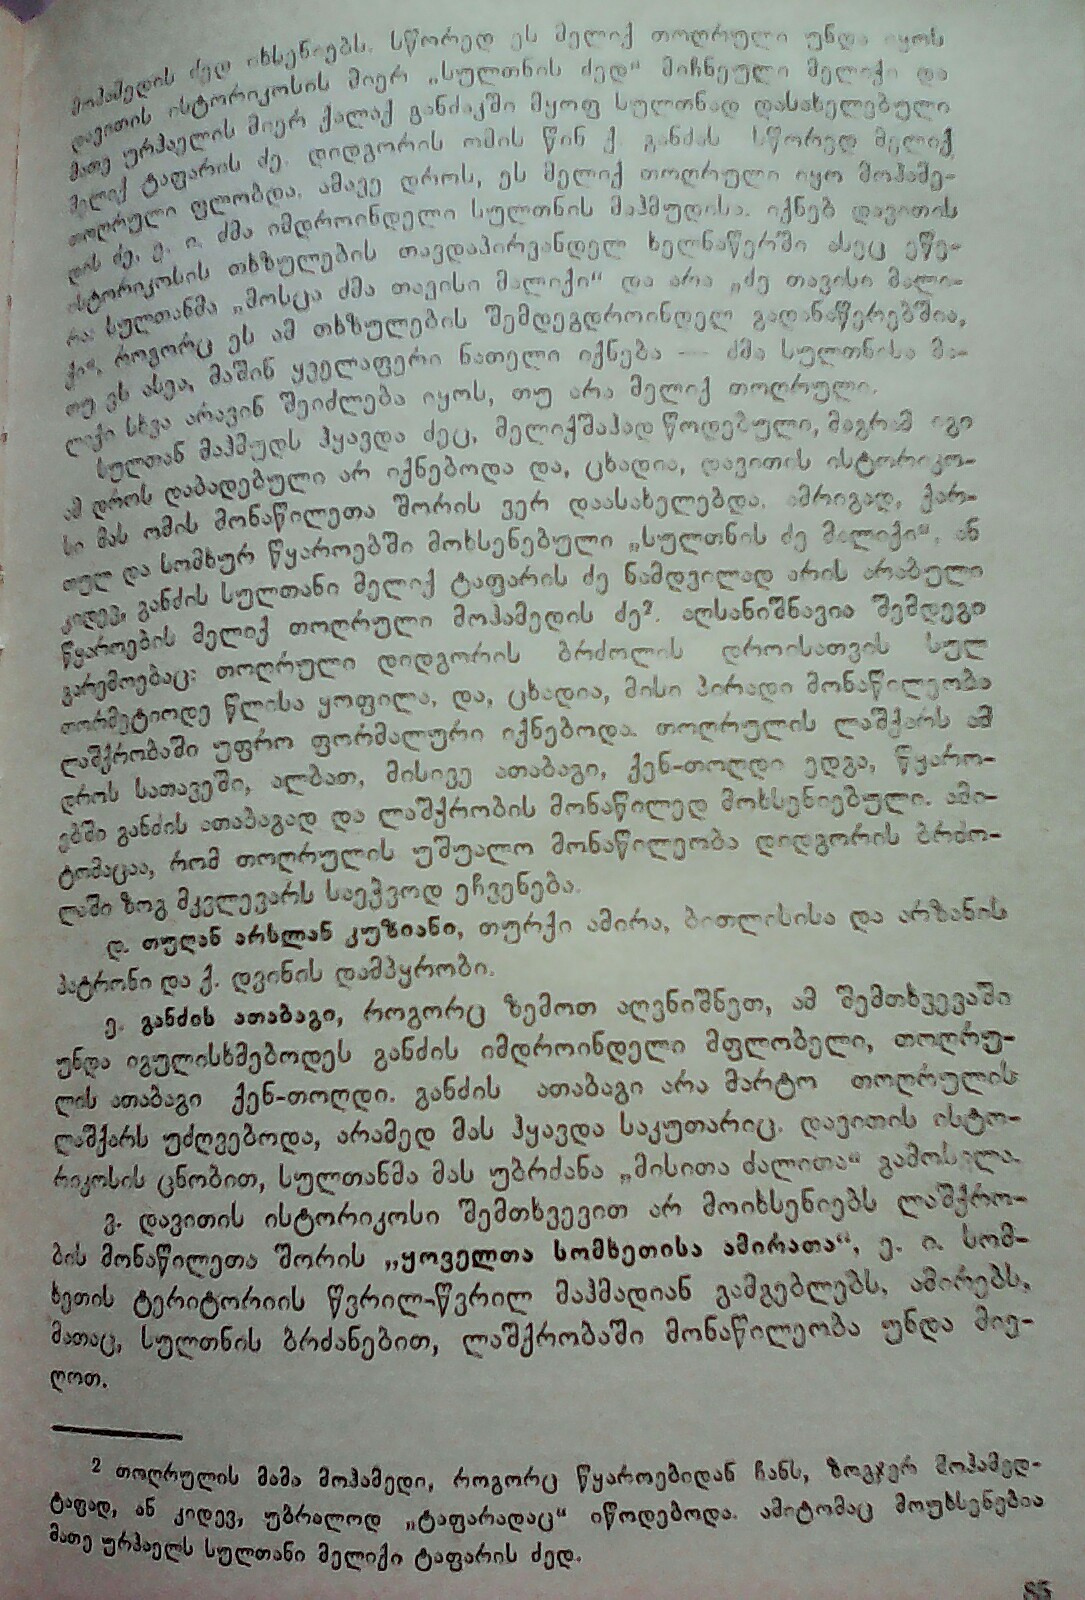 მოჰამედის ძედ იხსენიებს. სწორედ ეს მელიქ თოღრული უნდა იყოს
დავითის ისტორიკოსის მიერ „სულთნის ძედ“ მიჩნეული მელიქი და
მათე ურჰაელის მიერ ქალაქ განძაკში მყოფ სულთნად დასახელებული
მელიქ ტაფარის ძე. დიდგორის ომის წინ ქ. განძას სწორედ მელიქ
თოღრული ფლობდა. ამავე დროს, ეს მელიქ თოღრული იყო მოჰამე-
დის ძე, ე. ი. ძმა იმდროინდელი სულთნის მაჰმუდისა. იქნებ დავითის
ისტორიკოსის თხზულების თავდაპირვანდელ ხელნაწერში ასეც ეწე-
რა: სულთანმა „მოსცა ძმა თავისი მალიქი“ და არა „ძე თავისი მალი-
ქი“, როგორც ეს ამ თხზულების შემდეგდროინდელ გადანაწერებშია,
თუ ეს ასეა, მაშინ ყველაფერი ნათელი იქნება — ძმა სულთნისა მა-
ლიქი სხვა არავინ შეიძლება იყოს, თუ არა მელიქ თოღრული.
სულთან მაჰმუდს ჰყავდა ძეც, მელიქშაჰად წოდებული, მაგრამ იგი
ამ დროს დაბადებული არ იქნებოდა და, ცხადია, დავითის ისტორიკო-
სი მას ომის მონაწილეთა შორის ვერ დაასახელებდა. ამრიგად, ქარ-
თულ და სომხურ წყაროებში მოხსენებული „სულთნის ძე მალიქი“, ან
კიდევ, განძის სულთანი მელიქ ტაფარის ძე ნამდვილად არის არაბული
წყაროების მელიქ თოღრული მოჰამედის ძე². აღსანიშნავია შემდეგი
გარემოებაც: თოღრული დიდგორის ბრძოლის დროისათვის სულ
თორმეტიოდე წლისა ყოფილა, და, ცხადია, მისი პირადი მონაწილეობა
ლაშქრობაში უფრო ფორმალური იქნებოდა. თოღრულის ლაშქარს ამ
დროს სათავეში, ალბათ, მისივე ათაბაგი, ქენ-თოღდი ედგა, წყარო-
ებში განძის ათაბაგად და ლაშქრობის მონაწილედ მოხსენიებული. ამი-
ტომაცაა, რომ თოღრულის უშუალო მონაწილეობა დიდგორის ბრძო-
ლაში ზოგ მკვლევარს საეჭვოდ ეჩვენება.
დ. თუღან არსლან კუზიანი, თურქი ამირა, ბითლისისა და არზანის
პატრონი და ქ. დვინის დამპყრობი.
ე. განძის ათაბაგი, როგორც ზემოთ აღვნიშნეთ, ამ შემთხვევაში
უნდა იგულისხმებოდეს განძის იმდროინდელი მფლობელი, თოღრუ-
ლის ათაბაგი ქენ-თოღდი. განძის ათაბაგი არა მარტო თოღრულის
ლაშქარს უძღვებოდა, არამედ მას ჰყავდა საკუთარიც. დავითის ისტო-
რიკოსის ცნობით, სულთანმა მას უბრძანა „მისითა ძალითა“ გამოსვლა.
ვ. დავითის ისტორიკოსი შემთხვევით არ მოიხსენიებს ლაშქრო-
ბის მონაწილეთა შორის „ყოველთა სომხეთისა ამირათა“, ე. ი. სომ-
ხეთის ტერიტორიის წვრილ-წვრილ მაჰმადიან გამგებლებს, ამირებს,
მათაც, სულთნის ბრძანებით, ლაშქრობაში მონაწილეობა უნდა მიე-
ღოთ.
2 თოღრულის მამა მოჰამედი, როგორც წყაროებიდან ჩანს, ზოგჯერ მოჰამედ-
ტაფად, ან კიდევ, უბრალოდ „ტაფარადაც“ იწოდებოდა. ამიტომაც მოუხსენებია
მათე ურჰაელს სულთანი მელიქი ტაფარის ძედ.
85